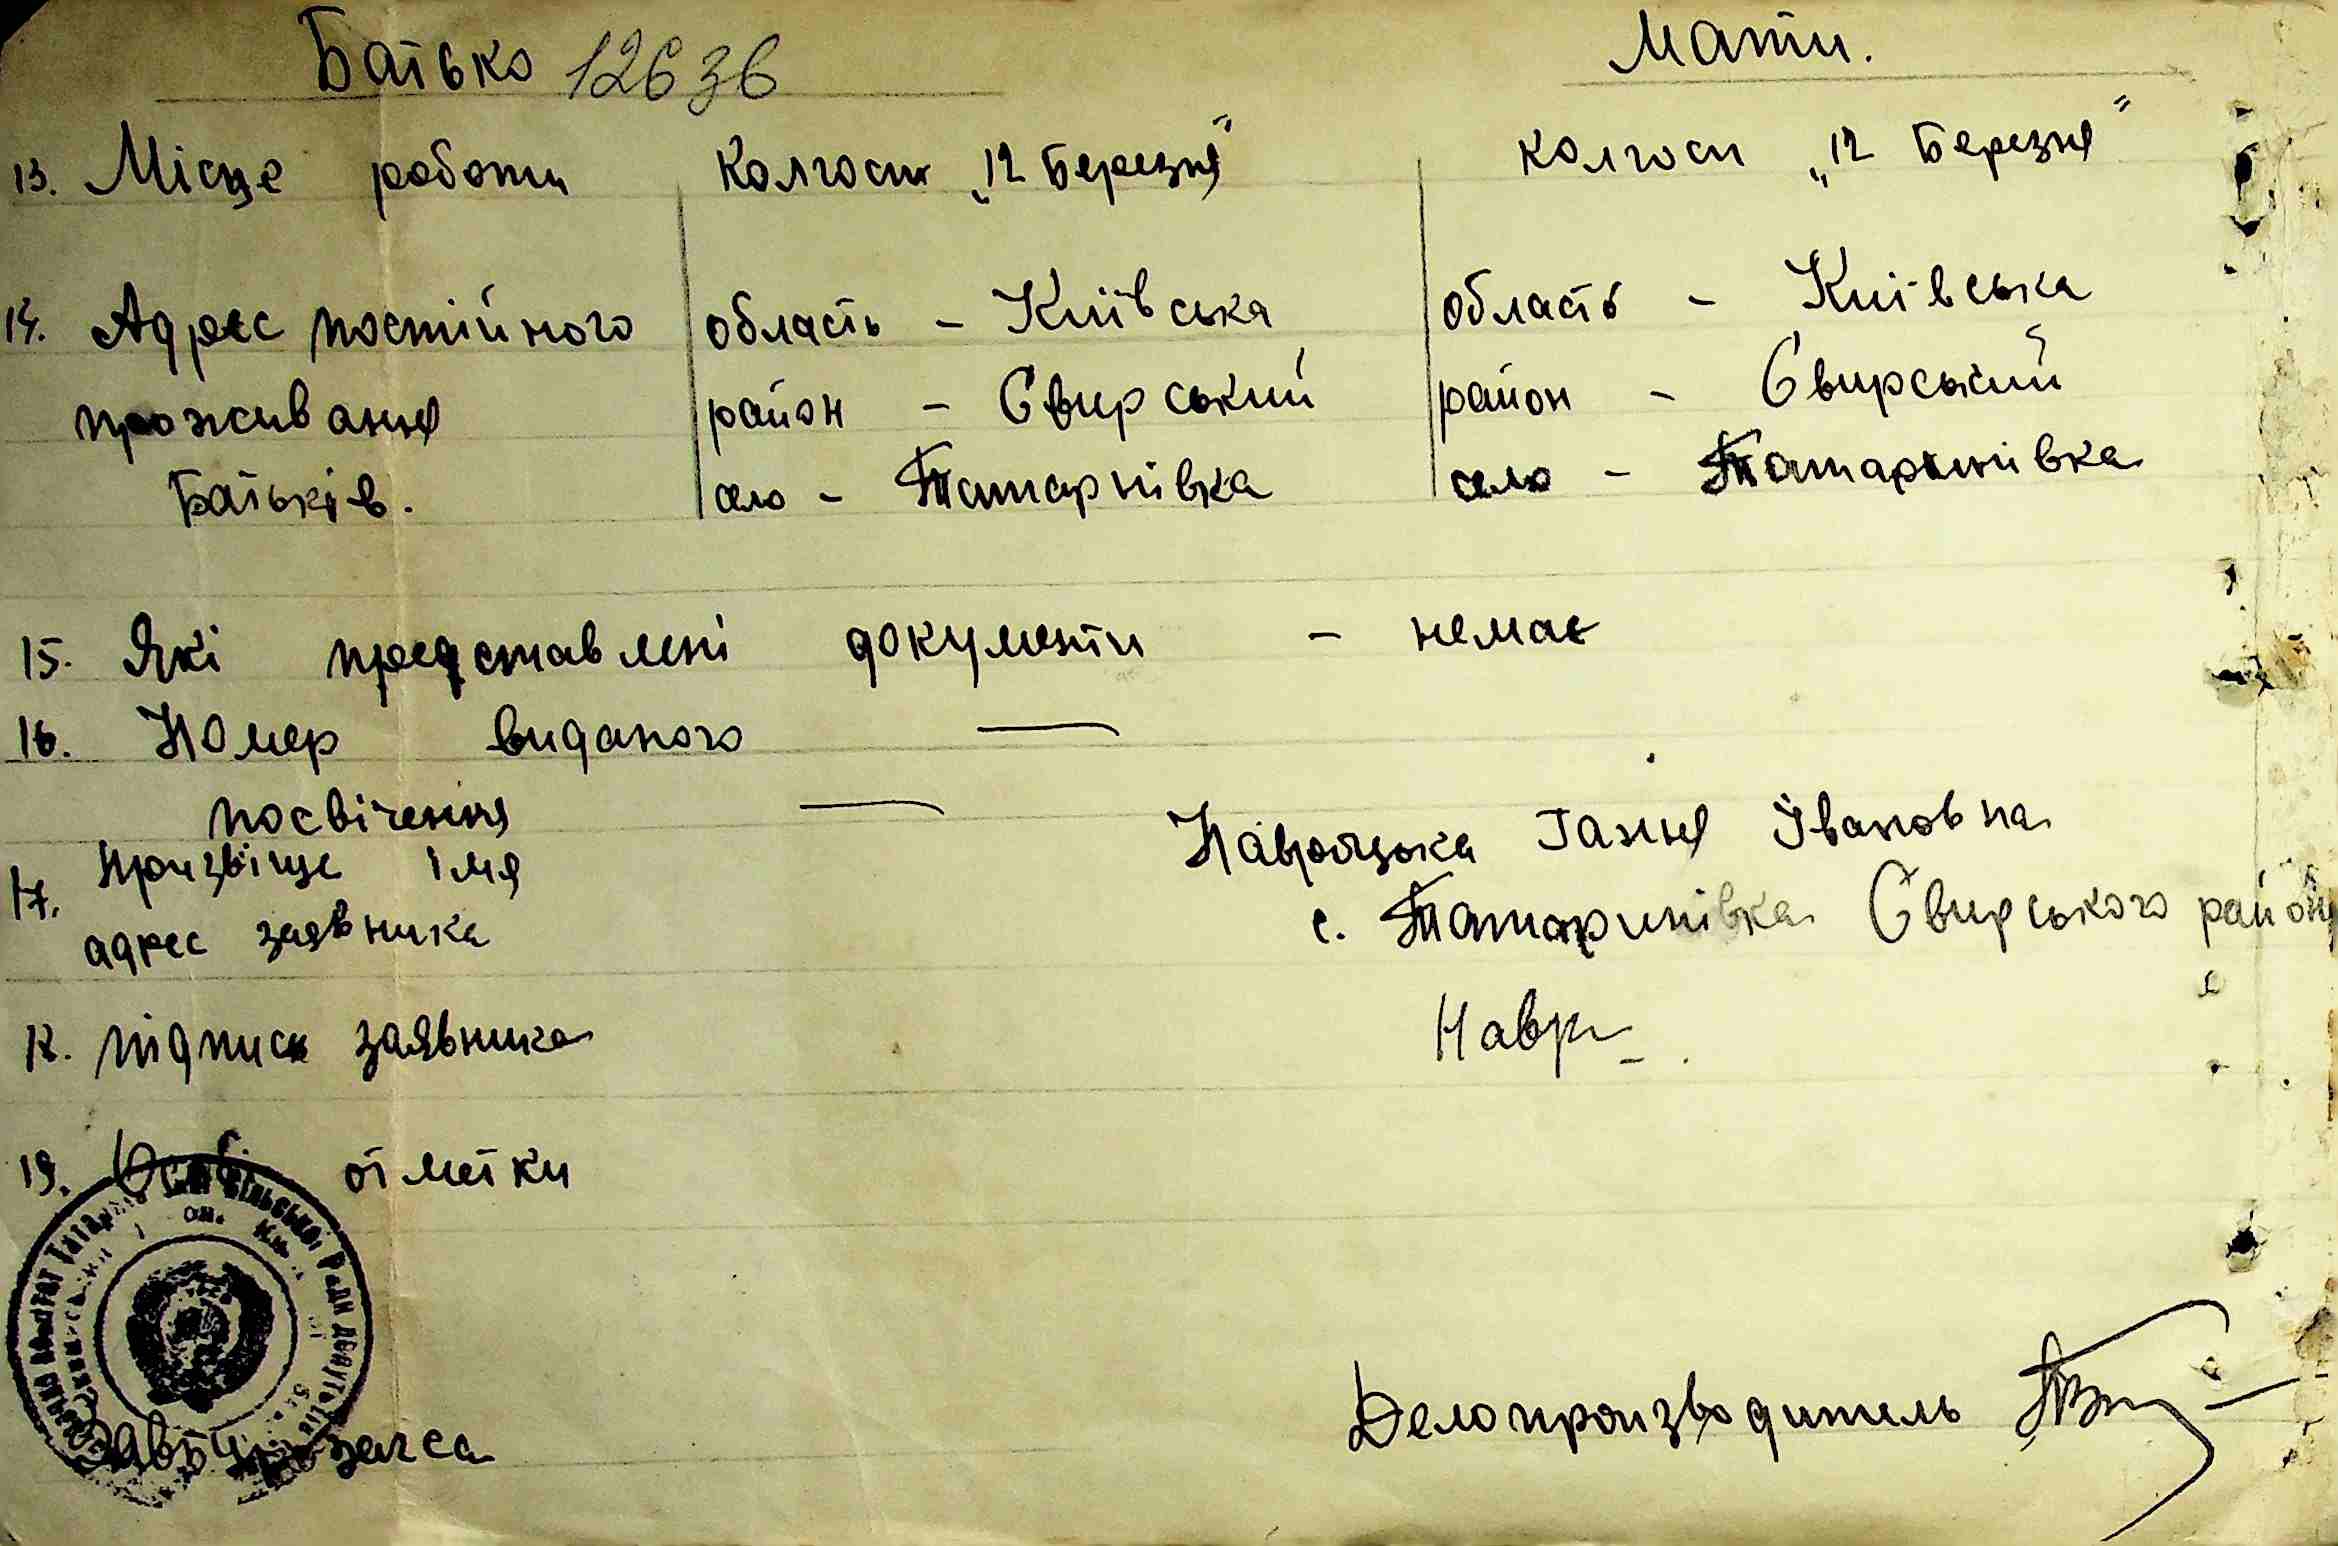 Батько 12636 Мати.
13. Місце роботи Колгосп „12 Березня" Колгосп „12 Березня"
14. Адрес постійного область - Київська область - Київська
проживання район - Сквирський район - Сквирський
Батьків. село - Татарнівка село - Татаринівка
15. Які представлені документи - немає
16. Номер виданого —
посвічення —
17. Призвіще імя Навроцька Гання Івановна
адрес заявника с. Татаринівка Сквирського району
18. підпис заявника Навр
19. Особі отметки
Сільської Ради депутатів
Завбюр загса
Делопроизводитель